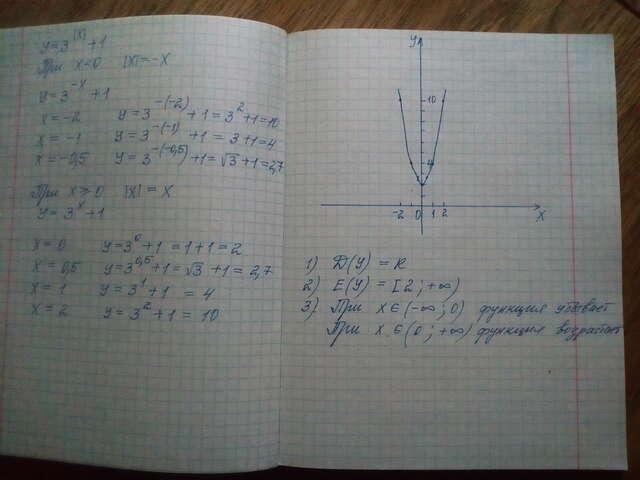 y=3^|x|+1
При x<0 |x|=-x
y=3^-x+1
x=-2 y=3^-(-2)+1=3^2+1=10
x=-1 y=3^-(-1)+1=3+1=4
x=-0,5 y=3^-(-0,5)+1=√3+1=2,7
При x≥0 |x|=x
y=3^x+1
x=0 y=3^0+1=1+1=2
x=0,5 y=3^0,5+1=√3+1=2,7
x=1 y=3^1+1=4
x=2 y=3^2+1=10
y
10
4
-2 0 1 2 x
1) D(y)=R
2) E(y)=[2;+∞)
3) При x∈(-∞;0) функция убывает
При x∈(0;+∞) функция возрастает